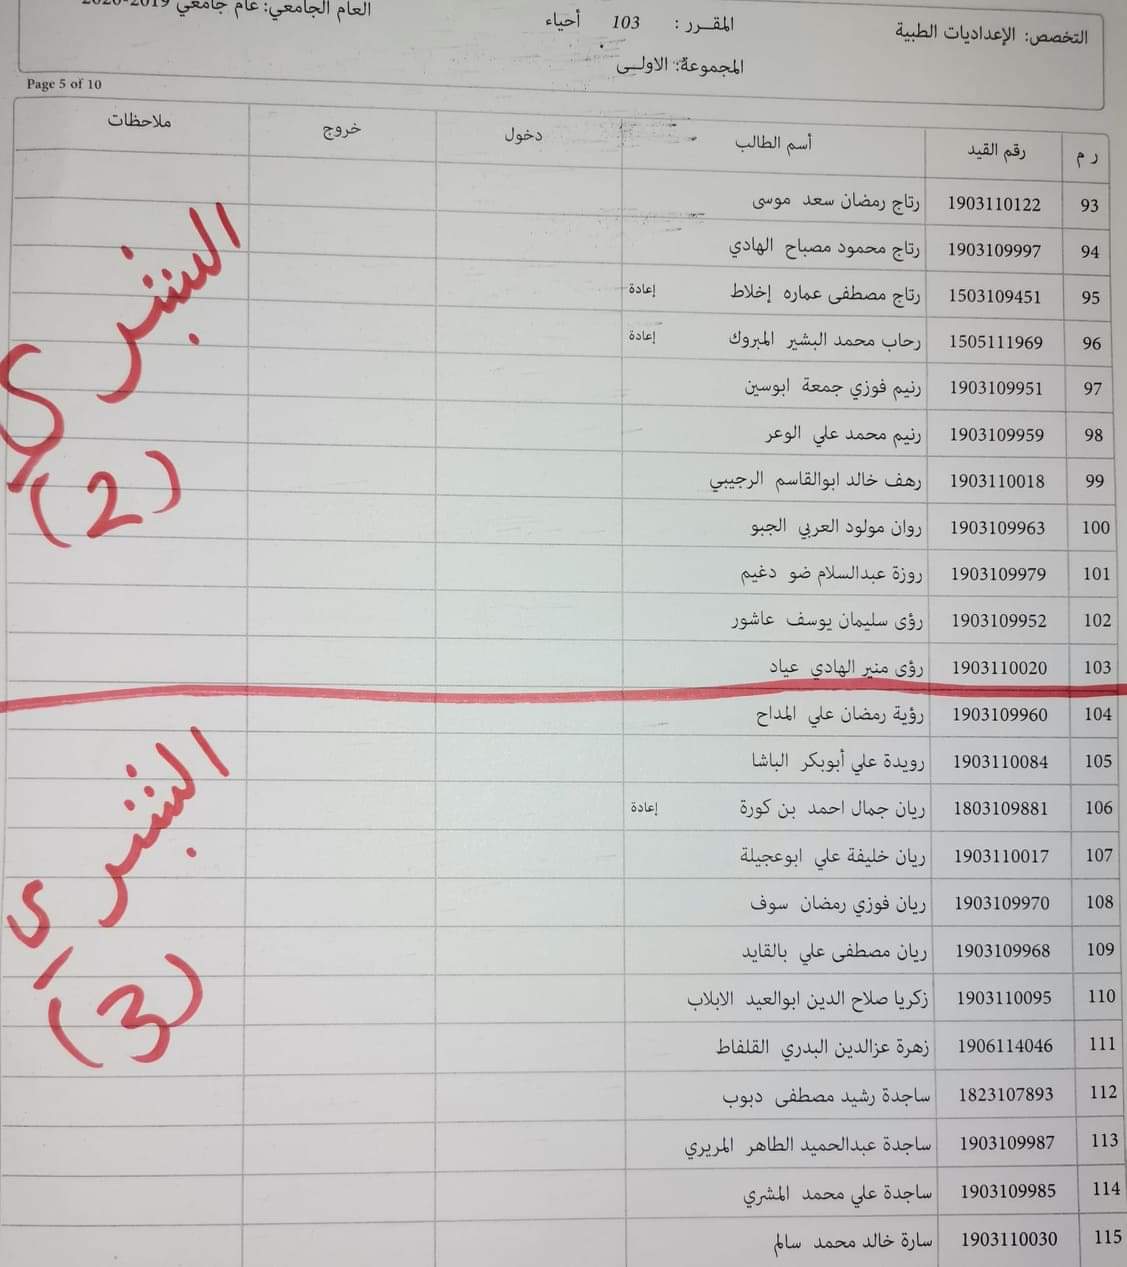 التخصص: الإعداديات الطبية
المقـرر : 103 أحياء
العام الجامعي: عام جامعي 2019-2020
المجموعة: الاولـى
Page 5 of 10
ر م رقم القيد أسم الطالب دخول خروج ملاحظات
93 1903110122 رتاج رمضان سعد موسى
94 1903109997 رتاج محمود مصباح الهادي
95 1503109451 رتاج مصطفى عماره إخلاط إعادة
96 1505111969 رحاب محمد البشير المبروك إعادة
97 1903109951 رنيم فوزي جمعة ابوسين
98 1903109959 رنيم محمد علي الوعر
99 1903110018 رهف خالد ابوالقاسم الرجيبي
100 1903109963 روان مولود العربي الجبو
101 1903109979 روزة عبدالسلام ضو دغيم
102 1903109952 رؤى سليمان يوسف عاشور
103 1903110020 رؤى منير الهادي عياد
البشري
(2)
104 1903109960 رؤية رمضان علي المداح
105 1903110084 رويدة علي أبوبكر الباشا
106 1803109881 ريان جمال احمد بن كورة إعادة
107 1903110017 ريان خليفة علي ابوعجيلة
108 1903109970 ريان فوزي رمضان سوف
109 1903109968 ريان مصطفى علي بالقايد
110 1903110095 زكريا صلاح الدين ابوالعيد الابلاب
111 1906114046 زهرة عزالدين البدري القلفاط
112 1823107893 ساجدة رشيد مصطفى دبوب
113 1903109987 ساجدة عبدالحميد الطاهر المريري
114 1903109985 ساجدة علي محمد المشري
115 1903110030 سارة خالد محمد سالم
البشري
(3)